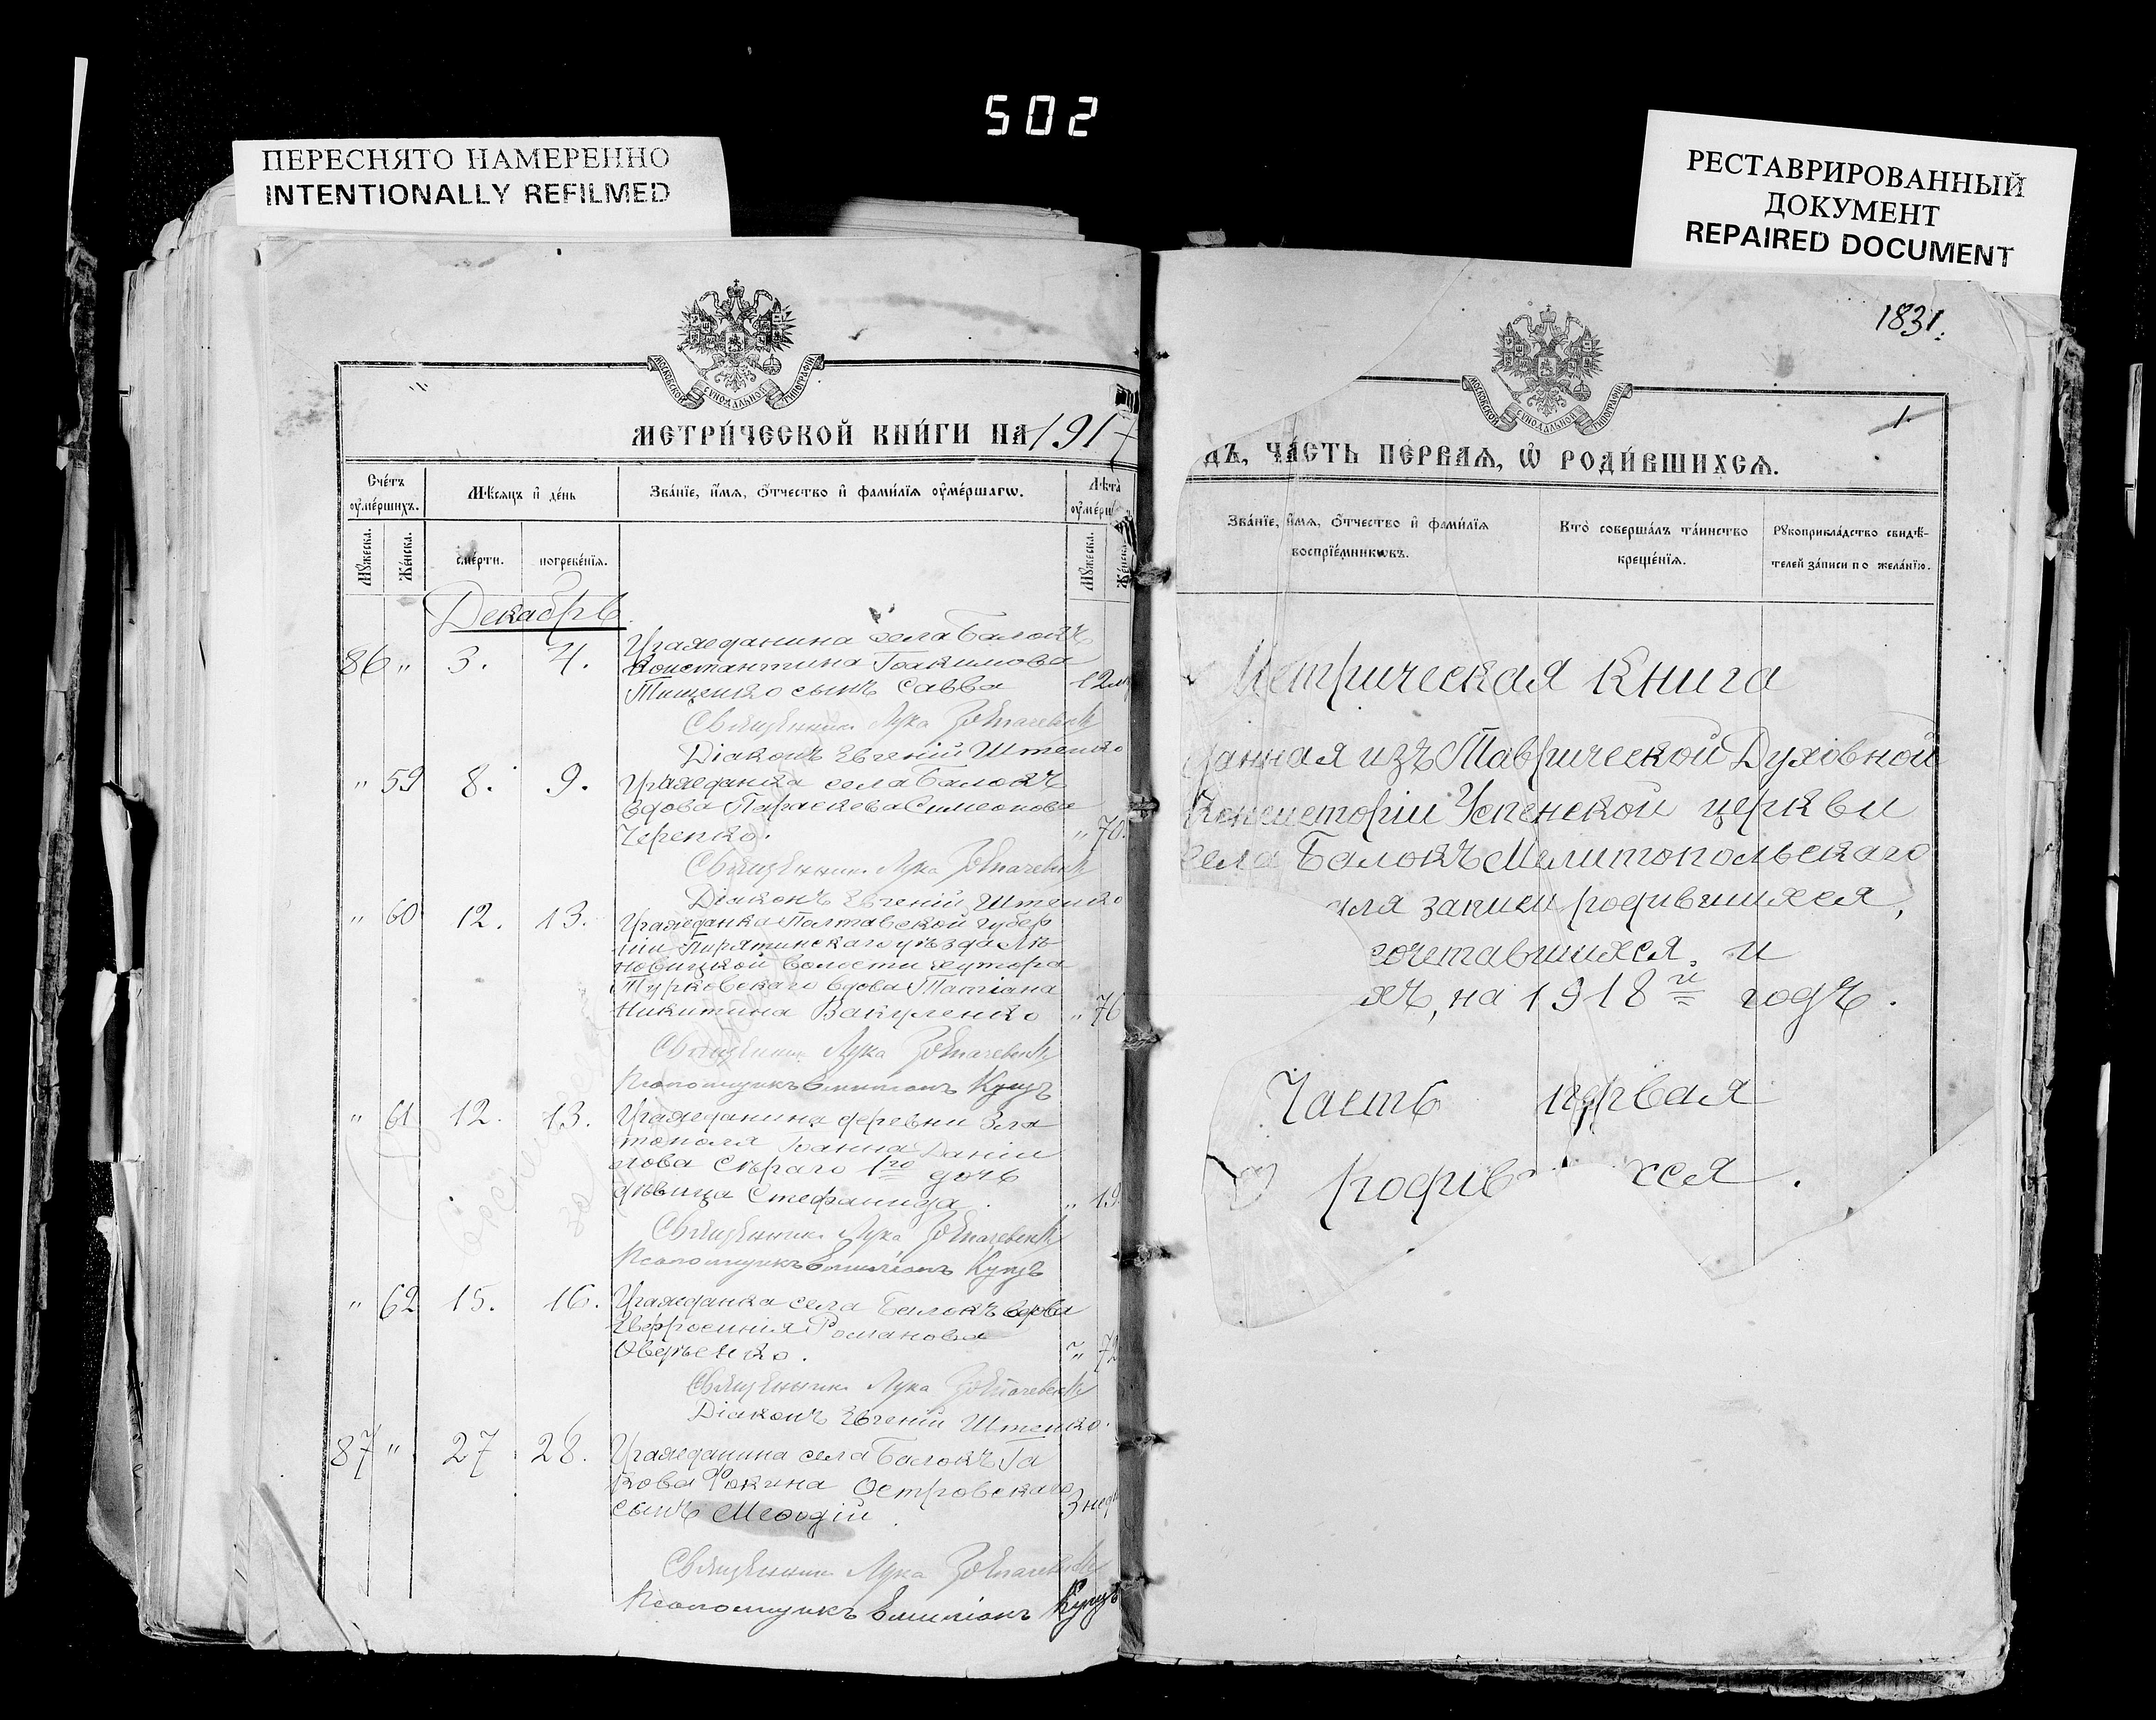 502
ПЕРЕСНЯТО НАМЕРЕННО
INTENTIONALLY REFILMED
РЕСТАВРИРОВАННЫЙ
ДОКУМЕНТ
REPAIRED DOCUMENT
МОСКОВСКОЙ СУНОДАЛЬНОЙ ТИПОГРАФІИ
МЕТРИ́ЧЕСКОЙ КНИ́ГИ НА 1917
Сче́тъ ᲂу҆ме́ршихъ.
Мѣ́сяцъ и҆ де́нь
Зва́нїе, и҆́мѧ, ѻ҆́тчество и҆ фами́лїѧ ᲂу҆ме́ршагѡ.
Лѣта̀
Мꙋ́жеска.
Же́нска.
сме́рти.
погребе́нїѧ.
Мꙋ́жеска.
Декабрь
86 " 3. 4. Гражданина села Балокъ
Константина Іоакимова
Тищенко сынъ Савва 12
Священник Лука
Діаконъ Евгеній Штенко
" 59 8. 9. Гражданка села Балокъ
вдова Параскева Симеонова
Черепко. " 70.
Священник Лука
Діаконъ Евгеній Штенко
" 60 12. 13. Гражданка Полтавской губер
ніи Пирятинскаго уѣзда
новицкой волости хутора
Турковскаго вдова Татіана
Никитина Вакуленко " 76
Священник Лука
Псаломщикъ Емиліанъ Куць
" 61 12. 13. Гражданина деревни Зла
тополя Іоанна Даніи
лова Сѣраго 1го дочь
дѣвица Стефанида. " 19
Священник Лука
Псаломщикъ Емиліанъ Куць
" 62 15. 16. Гражданка села Балокъ вдова
Евфросинія Романова
Оверченко. " 72
Священник Лука
Діаконъ Евгеній Штенко.
87 " 27 28. Гражданина села Балокъ Іа
кова Фокина Островскаго
сынъ Меѳодій. 3 нед
Священник Лука
Псаломщикъ Емиліанъ Куць
1831.
МОСКОВСКОЙ СУНОДАЛЬНОЙ ТИПОГРАФІИ
1.
ДЪ, ЧА́СТЬ ПЕ́РВАѦ, Ѽ РОДИ́ВШИХСѦ.
Зва́нїе, и҆́мѧ, ѻ҆́тчество и҆ фами́лїѧ
воспрїе́мникѡвъ.
Кто̀ соверша́лъ та́инство
креще́нїѧ.
Рꙋкоприкла́дство свидѣ́-
телей за́писи по жела́нїю.
Метрическая Книга
данная изъ Таврической Духовной
Консисторіи Успенской церкви
села Балокъ Мелитопольскаго
для записи родившихся,
сочетавшихся и
хъ, на 1918й годъ.
Часть первая
родив хся.